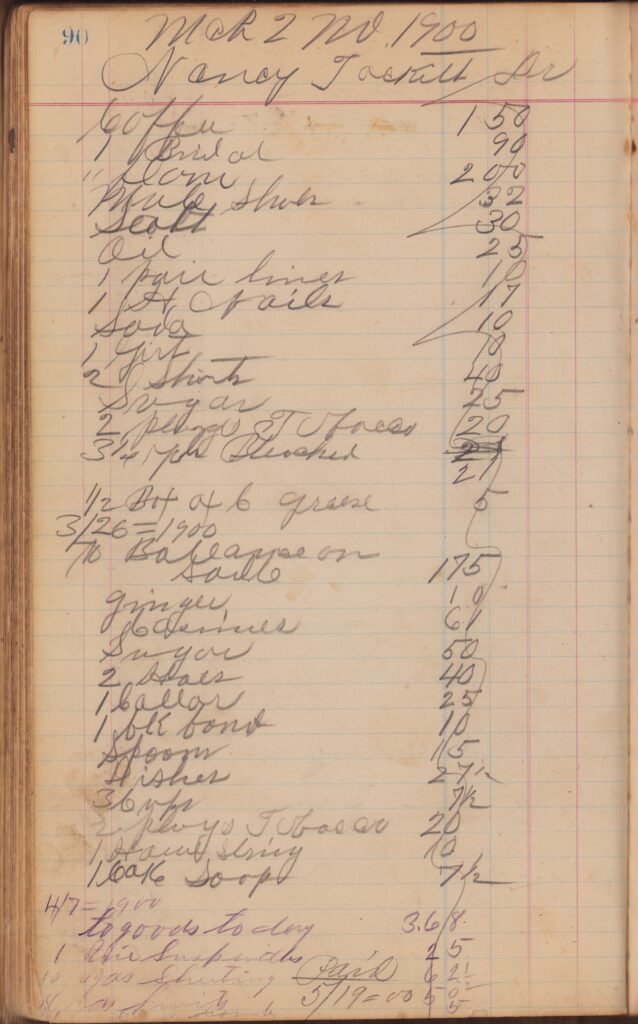 90
Mch 2 Nd. 1900
Nancy Tackett Dr
Coffee 1 50
1 Bridal 90
" 200
Mule Shoes 32
30
Oil 25
1 pair lines 10
1 lb Nails 17
Soda 10
1 Girt 10
2 Shirts 40
Sugar 25
2 plugs Tobacco 20
3 3/4 yds Bleached 21
1/2 Box of greese 5
3/26=1900
To on
175
ginger 10
61
Sugar 50
2 40
1 Collar 25
1 bk band 10
Spoons 15
Dishes 27 1/2
3 Cups 7 1/2
2 plugs Tobacco 20
1 String 10
1 Cake Soap 7 1/2
4/7=1900
to goods to day 3.68
1 Pair Suspenders 25
10 yds Shirting Paid 62 1/2
5/19=00 50
5